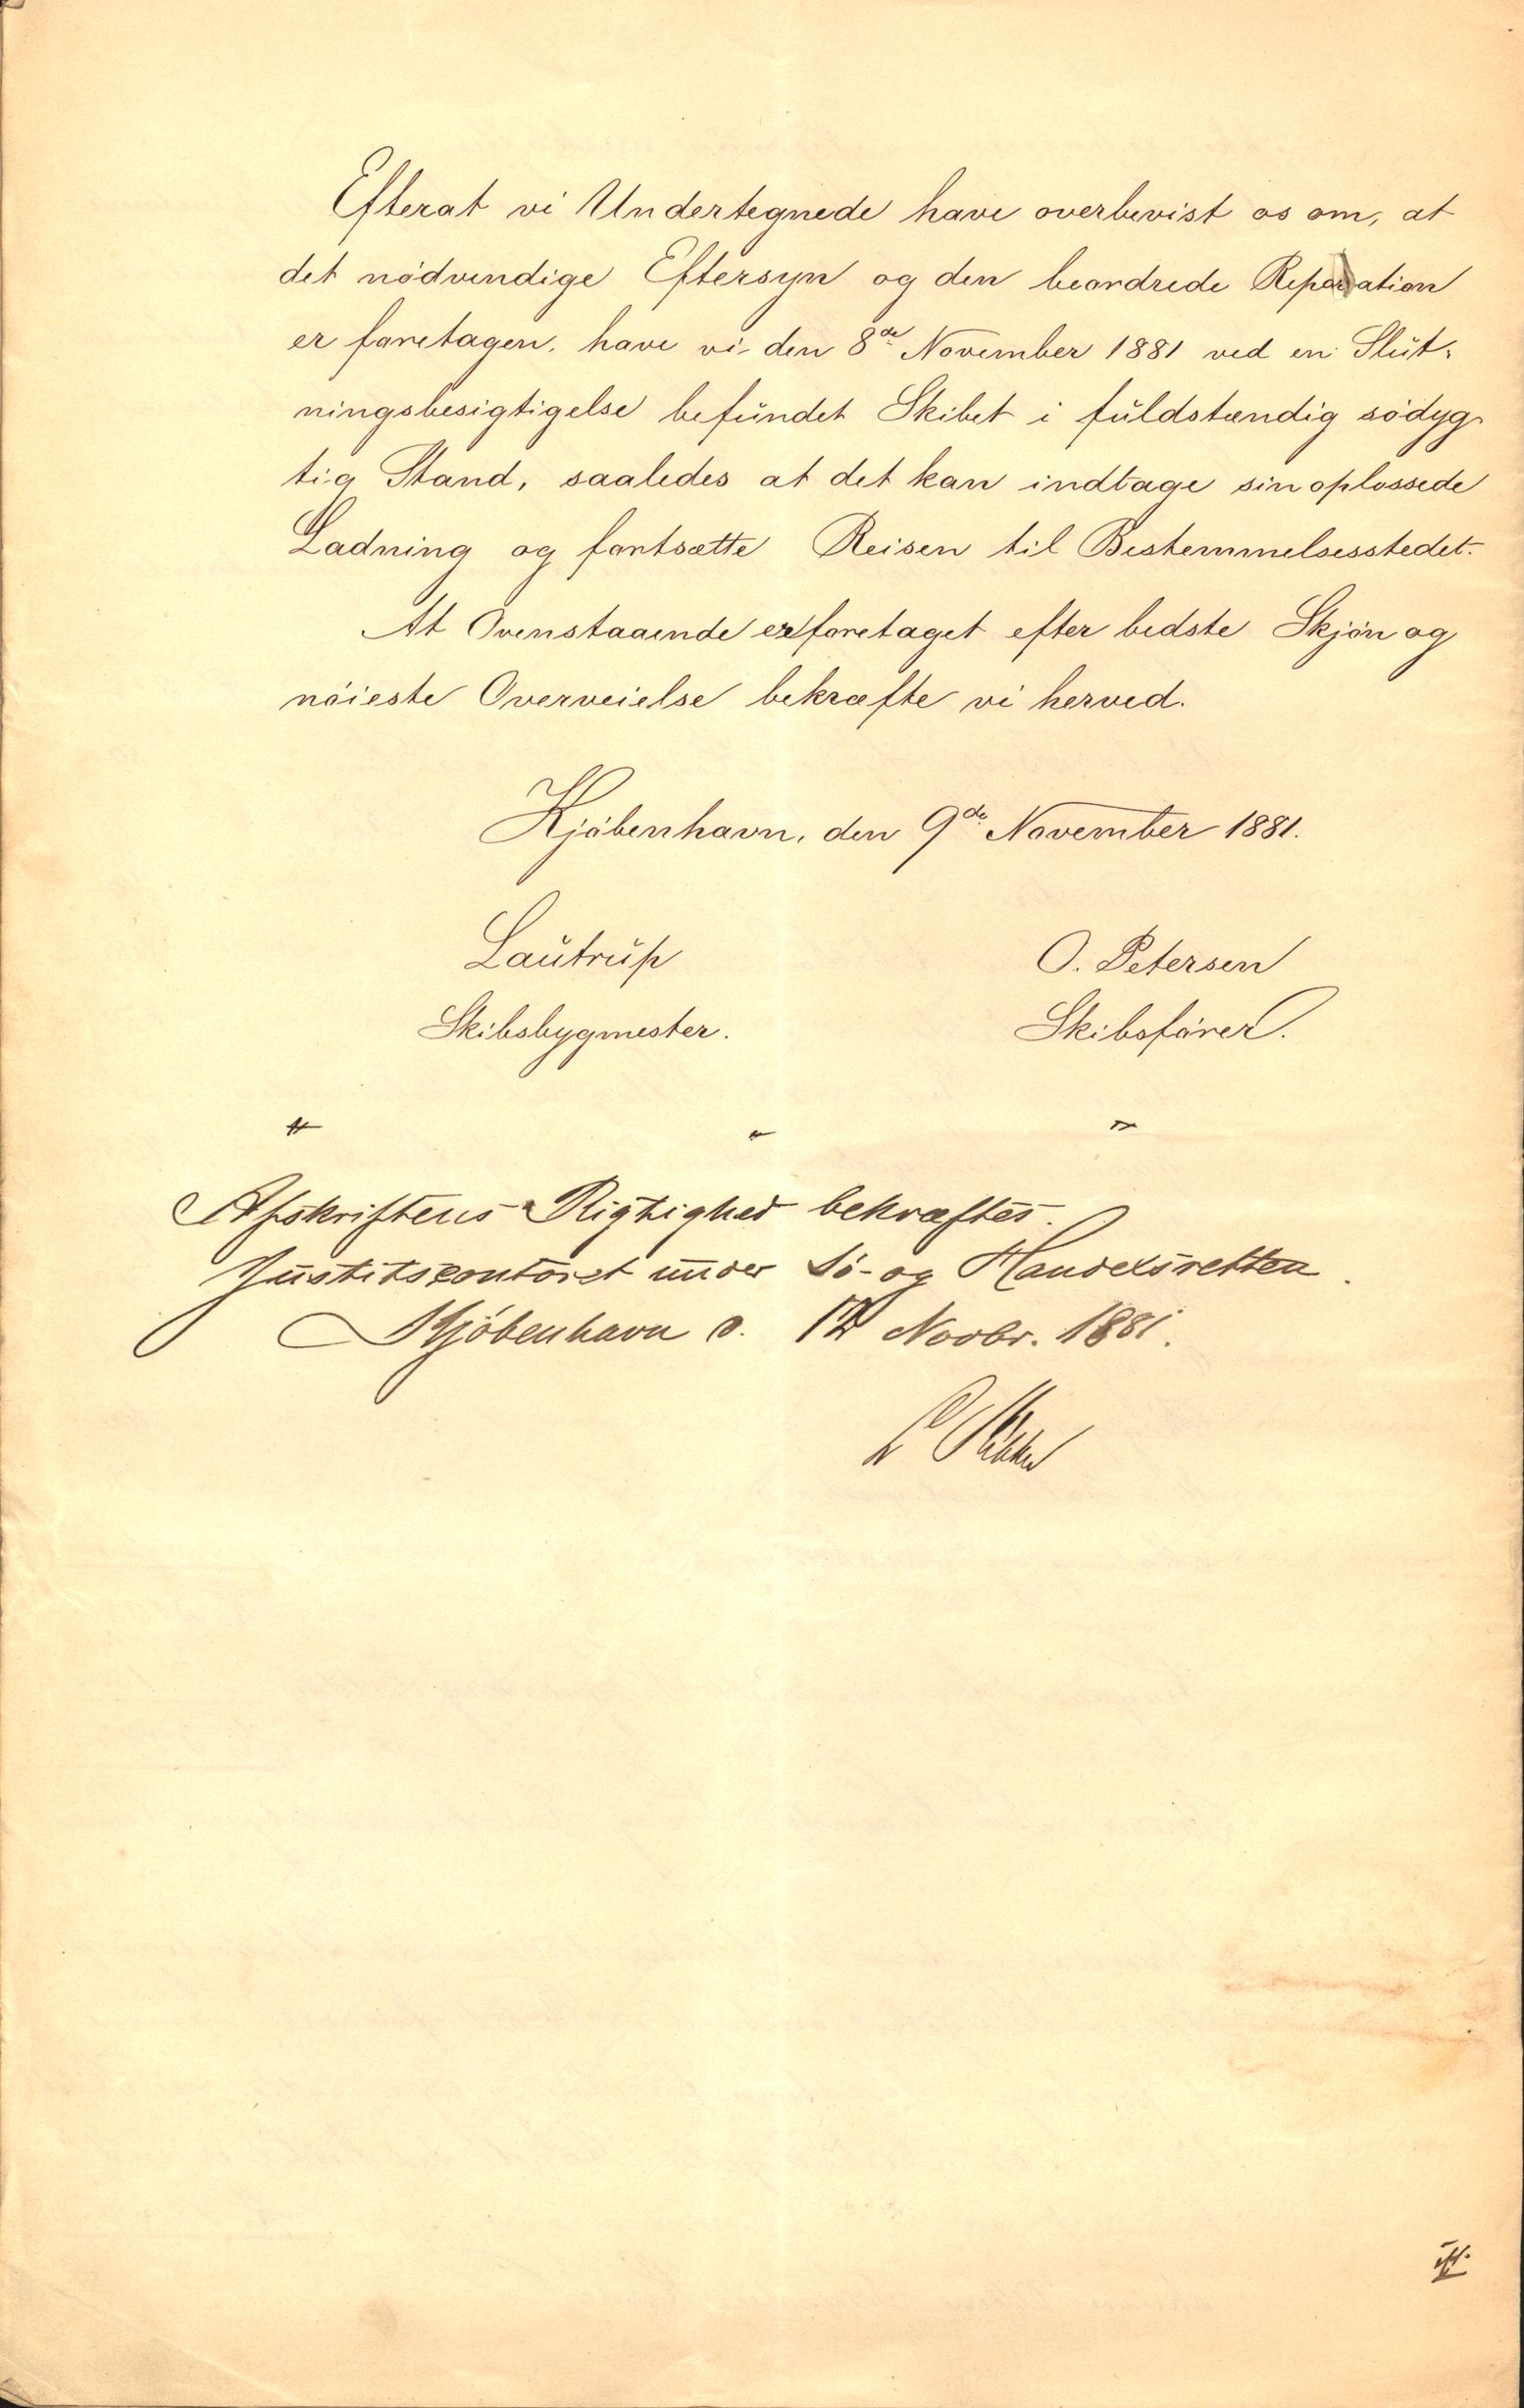 Efterat vi Undertegnede have overbevist os om, at
det nödvendige Eftersyn og den beordrede Reparation
er foretagen, have vi den 8de November 1881 ved en Slut-
ningsbesigtigelse befundet Skibet i fuldstændig södyg-
tig Stand, saaledes at det kan indtage sin oplossede
Ladning og fortsætte Reisen til Bestemmelsesstedet.
At Ovenstaaende er foretaget efter bedste Skjön og
nöieste Overveielse bekræfte vi herved.
Kjöbenhavn, den 9de November 1881.
Lautrup O. Petersen
Skibsbygmester. Skibsförer.
" " "
Afskriftens Rigtighed bekræftes.
Justitskontoret under Sö- og Handelsretten.
Kjöbenhavn d. 12 Novbr. 1881.